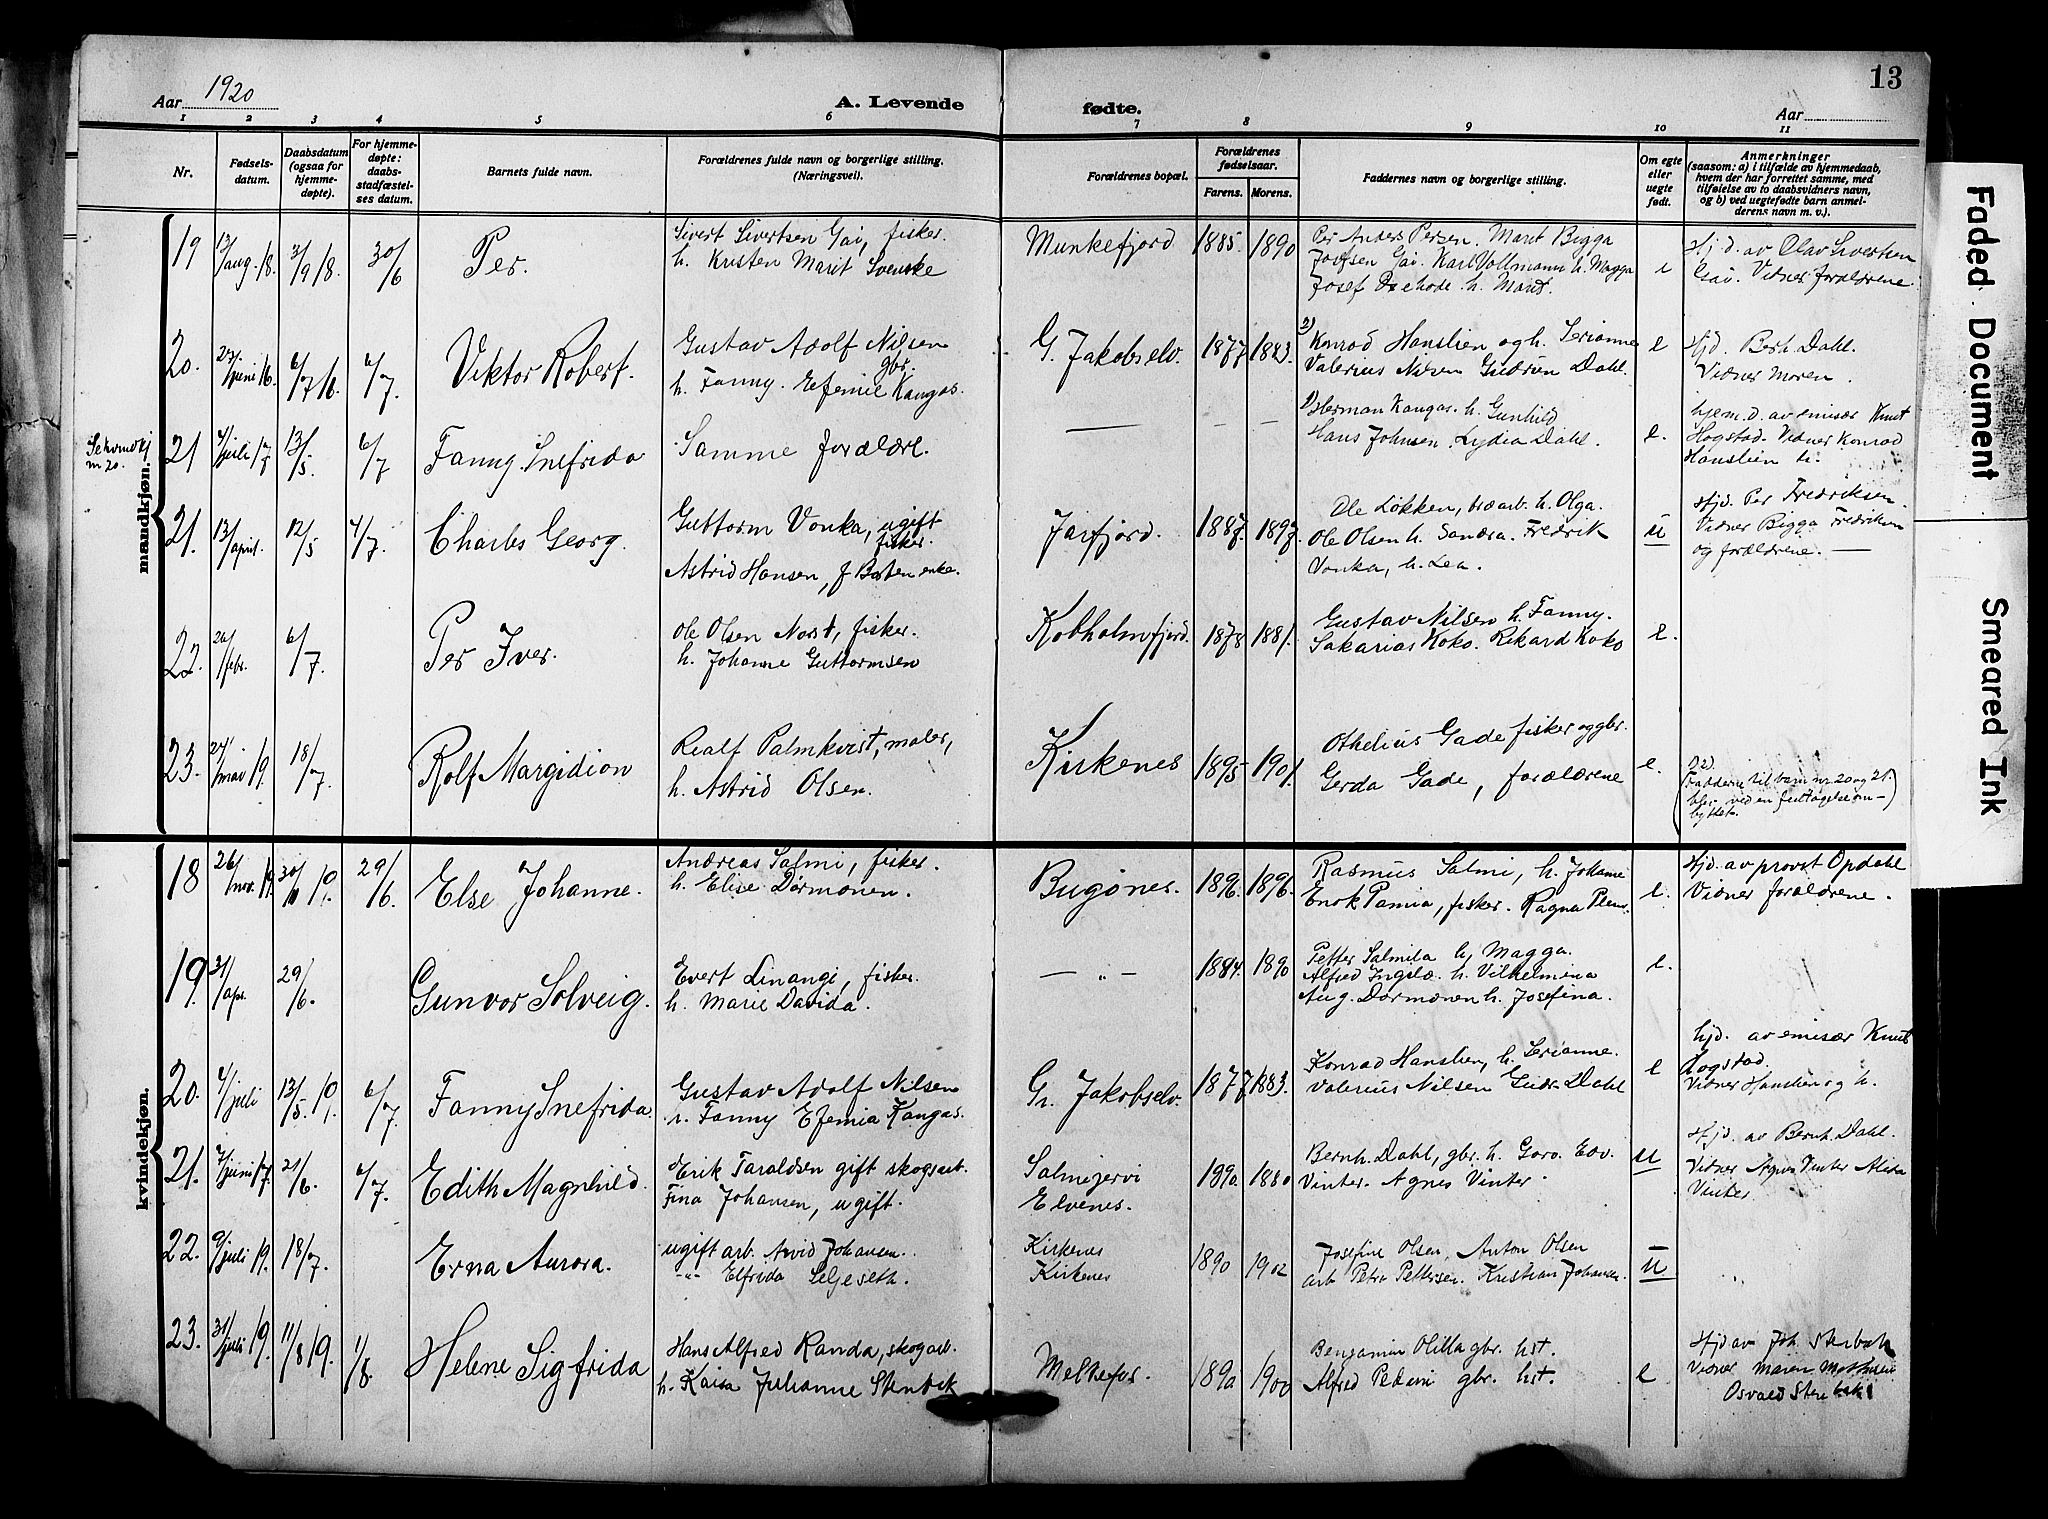 Aar 1920
A. Levende
fødte.
Aar
13
1 2 3 4 5 6 7 8 9 10 11
Nr.
Fødsels-
datum.
Daabsdatum
(ogsaa for
hjemme-
døpte).
For hjemme-
døpte:
daabs-
stadfæstel-
ses datum.
Barnets fulde navn.
Forældrenes fulde navn og borgerlige stilling.
(Næringsvei.)
Forældrenes bopæl.
Forældrenes
fødselsaar.
Farens. Morens.
Faddernes navn og borgerlige stilling.
Om egte
eller
uegte
født.
Anmerkninger
(saasom: a) i tilfælde av hjemmedaab,
hvem der har forrettet samme, med
tilføielse av to daabsvidners navn,
og b) ved uegtefødte barn anmel-
derens navn m. v.).
mandkjøn.
19
13/aug. 18.
3/9 18.
30/6
Per.
Sivert Sivertsen Gai, fisker.
h. Kristen Marit Svenske
Munkefjord
1885. 1890
Per Anders Persen. Marit Bigga
Josefsen Gai. Karl Vollmann h. Magga
Josef h. Marit.
e
Hjd. av Olav Sivertsen
Gai. Vidner forældrene.
20.
juni 16.
6/7 16
6/7.
Viktor Robert.
Gustav Adolf Nilsen
gbr.
h. Fanny Efemie Kangas.
G. Jakobselv.
1877 1883.
2)
Konrad Hanslien og h. Serianne
Valerius Nilsen Gudrun Dahl.
e
Hjd. Berh. Dahl.
Vidner moren.
21
4/juli 17
13/5
6/7
Fanny Snefrida
Samme forældre.
— - -
1) Herman Kangas. h. Gunhild
Hans Johnsen. Lydia Dahl.
e.
hjem.d. av emisær Knut
Hogstad. Vidner Konrad
Hanslien h.
21.
13/april.
12/5
4/7.
Charles Georg.
Guttorm Vonka, ugift
fisker.
Astrid Hansen, f enke.
Jarfjord.
1887. 1897.
Ole Løkken, h. Olga.
Ole Olsen h. Sandra. Fredrik
Vonka, h. Lea.
u
Hjd. Per Fredriksen.
Vidner Bigga Fredriksen
og forældrene. —
22.
26/febr.
6/7.
Per Iver.
Ole Olsen Norst, fisker.
h. Johanne Guttormsen
Kobholmfjord.
1878 1881.
Gustav Nilsen h. Fanny.
Sakarias Koko. Rikard Koko
e.
23.
27/mai 19.
18/7.
Rolf Margidion
Realf Palmkvist, maler,
h. Astrid Olsen.
Kirkenes
1895 1901.
Othelius Gade fisker og gbr.
Gerda Gade, forældrene
e.
Fadderne til barn nr. 20 og 21.
blev ved en feiltagelse om-
byttet.
kvindekjøn.
18
26/nov. 19.
29/6.
Else Johanne.
Andreas Salmi, fisker.
h. Elise Dørmænen.
Bugønes.
1896. 1896.
Rasmus Salmi, h. Johanne
Enok Pamia, fisker. Ragna
e.
Hjd. av provst Opdahl
Vidner forældrene.
19.
21/apr.
29/6.
Gunvor Solveig.
Evert Linangi, fisker.
h. Marie Davida.
— „ —
1884. 1890
Petter Salmila h. Magga.
Alfred h. Vilhelmina
Aug. Dørmænen h. Josefina.
e.
20.
4/juli
13/5
6/7
Fanny Snefrida.
Gustav Adolf Nilsen
h. Fanny Efemia Kangas.
Gr. Jakobselv.
1877 1883.
Konrad Hanslien, h. Serianne.
Valerius Nilsen Gudr. Dahl
e
hjd. av emisær Knut
Hogstad.
Vidner Hanslien og h.
21.
7/juni 17.
21/6.
6/7
Edith Magnhild.
Erik Taraldsen gift skogsarb.
Fina Johansen, ugift.
Salmijervi
Elvenes.
1890. 1880
Bernh. Dahl, gbr. h. Goro. Edv.
Vinter. Agnes Vinter.
u
Hjd. av Bernh. Dahl.
Vidner Agnes Vinter
Vinter.
22.
9/juli 19.
18/7.
Erna Aurora.
ugift arb. Arvid Johansen.
-"- Elfrida Seljeseth.
Kirkenes
Kirkenes
1890 1902
Josefine Olsen, Anton Olsen
arb Petra Pettersen. Kristian Johansen.
u
23.
31/juli 19.
11/8 19.
1/8.
Helene Sigfrida
Hans Alfred Randa, skogarb.
h. Kaisa Julianne Stenbek
Melkefos.
1890 1900
Benjamin Olilla gbr. hst.
Alfred gbr. hst.
e
Hjd av Joh. Stenbak
Vidner Maren
Osvald Stenbakk
Faded Document
Smeared Ink